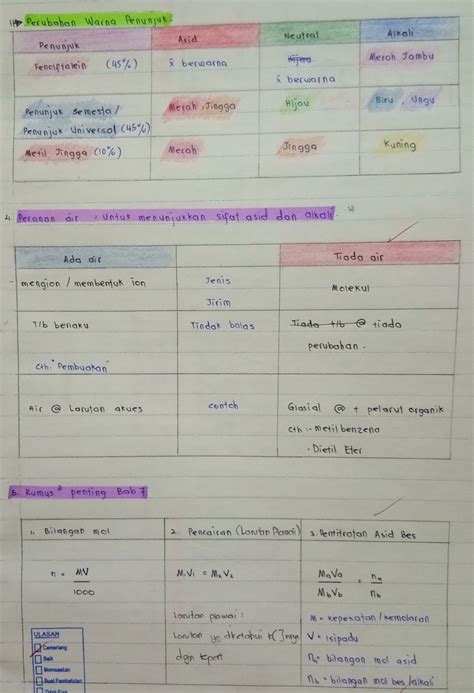 Perubahan Warna Penunjuk
Penunjuk Asid Neutral Alkali
Fenolptalein (45%) x̄ berwarna x̄ berwarna Merah Jambu
Penunjuk Semesta / Merah, Jingga Hijau Biru, Ungu
Penunjuk Universal (45%)
Metil Jingga (10%) Merah Jingga Kuning
4. Peranan air : Untuk menunjukkan sifat asid dan alkali.
Ada air Tiada air
mengion / membentuk ion Jenis Molekul
Jirim
T/b berlaku Tindak balas Tiada t/b @ tiada
perubahan.
Cth: Pembuakan
Air @ Larutan akues contoh Glasial @ + pelarut organik
cth :- metil benzena
- Dietil Eter
5. Rumus² penting Bab 7
1. Bilangan mol 2. Pencairan (Larutan Piawai) 3. Pentitratan Asid Bes
n = MV / 1000 M₁V₁ = M₂V₂ MaVa / MbVb = na / nb
Larutan piawai : M = kepekatan / kemolaran
Larutan yg diketahui k[ ]nya V = isipadu
dgn tepat na = bilangan mol asid
nb = bilangan mol bes/alkali
ULASAN
Cemerlang
Baik
Memuaskan
Buat Pembetulan